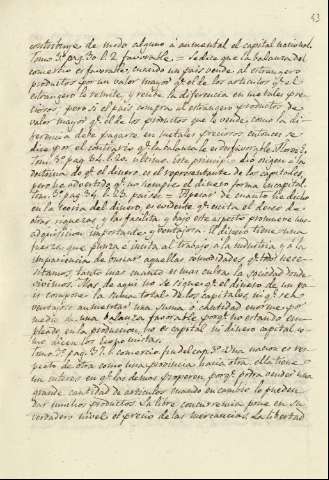 53
contribuye de modo alguno à aumentar el capital nacional.
Tomo 3.º pag. 30. l. 2. favorable. = Se dice que la balanza del
comercio es favorable, cuando un pais vende al estrangero
productos por un valor mayor q.e el de los articulos q.e el
estrangero le remite, y recibe la diferencia en metales pre-
ciosos; pero si el pais compra al estrangero productos de
valor mayor q.e el de los productos que le vende como la di-
ferencia debe pagarse en metales preciosos entonces se
dice por el contrario q.e la balanza le es desfavorable.
Tom. 3.º pag. 34. l. 20. este dió origen à la
doctrina de q.e el dinero es el representante de los capitales,
pero he advertido q.e no siempre el dinero forma un capital.
Tomo 3.º pag. 34. = A pesar de cuanto he dicho
en la teoria del dinero es evidente q.e incita el deseo de
otras riquezas y las facilita y bajo este aspecto promueve una
adquisicion importante y ventajosa. El dinero tiene una
fuerza que punza è incita al trabajo à la industria y à la
impaciencia de buscar aquellas comodidades q.e todos nece-
sitamos, tanto mas cuanto es mas culta la sociedad donde
vivimos. Mas de aqui no se sigue q.e el dinero de un pa-
is compone la suma total de los capitales, ni q.e sea
ventajoso aumentar una suma ò cantidad enorme por
medio de una balanza favorable porq.e no estando em-
pleado en la produccion, no es capital ni dinero capital co-
mo dicen los
Tomo 3.º pag. 37. l. comercio fin del cap. 3.º Una nacion es res-
pecto de otra como una provincia hacia otra ella tiene
un interes en q.e las demas prosperen porq.e podrá vender una
grande cantidad de articulos cuando en cambio la pueden
dar muchos productos. La libre concurrencia pone en su
verdadero nivel el precio de las mercancias. La libertad